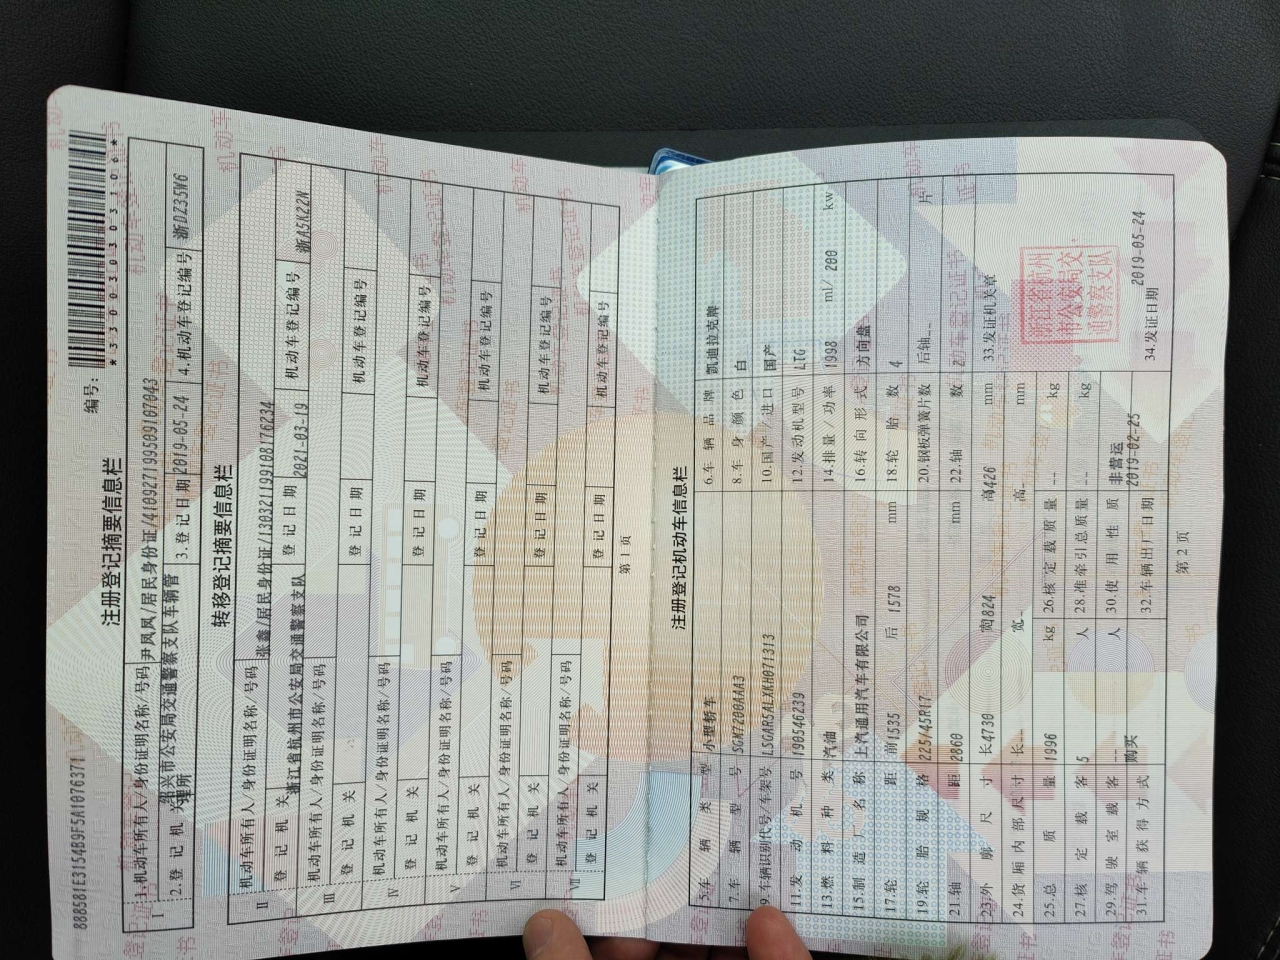 888581E3154B9F5A1076371
编号:
*330303031106*
注册登记摘要信息栏
I
1.机动车所有人/身份证明名称/号码 尹凤凤/居民身份证/410927199509107043
2.登记机关 绍兴市公安局交通警察支队车辆管理所 3.登记日期 2019-05-24 4.机动车登记编号 浙DZ35W6
转移登记摘要信息栏
II 机动车所有人/身份证明名称/号码 张鑫/居民身份证/130321199108176234
登记机关 浙江省杭州市公安局交通警察支队 登记日期 2021-03-19 机动车登记编号 浙A5K22N
III 机动车所有人/身份证明名称/号码
登记机关 登记日期 机动车登记编号
IV 机动车所有人/身份证明名称/号码
登记机关 登记日期 机动车登记编号
V 机动车所有人/身份证明名称/号码
登记机关 登记日期 机动车登记编号
VI 机动车所有人/身份证明名称/号码
登记机关 登记日期 机动车登记编号
VII 机动车所有人/身份证明名称/号码
登记机关 登记日期 机动车登记编号
第1页
注册登记机动车信息栏
5.车辆类型 小型轿车 6.车辆品牌 凯迪拉克牌
7.车辆型号 SGM7200AAA3 8.车身颜色 白
9.车辆识别代号/车架号 LSGAR5ALXKH071313 10.国产/进口 国产
11.发动机号 190546239 12.发动机型号 LTG
13.燃料种类 汽油 14.排量/功率 1998 ml/ 200 kw
15.制造厂名称 上汽通用汽车有限公司 16.转向形式 方向盘
17.轮距 前1535 后 1578 mm 18.轮胎数 4
19.轮胎规格 225/45R17 20.钢板弹簧片数 后轴-- 片
21.轴距 2860 mm 22.轴数 2
23.外廓尺寸 长4730 宽1824 高1426 mm 33.发证机关章
24.货厢内部尺寸 长-- 宽- 高- mm
25.总质量 1996 kg 26.核定载质量 -- kg
27.核定载客 5 人 28.准牵引总质量 -- kg
29.驾驶室载客 -- 人 30.使用性质 非营运
31.车辆获得方式 购买 32.车辆出厂日期 2019-02-25 34.发证日期 2019-05-24
浙江省杭州
市公安局交
通警察支队
第2页